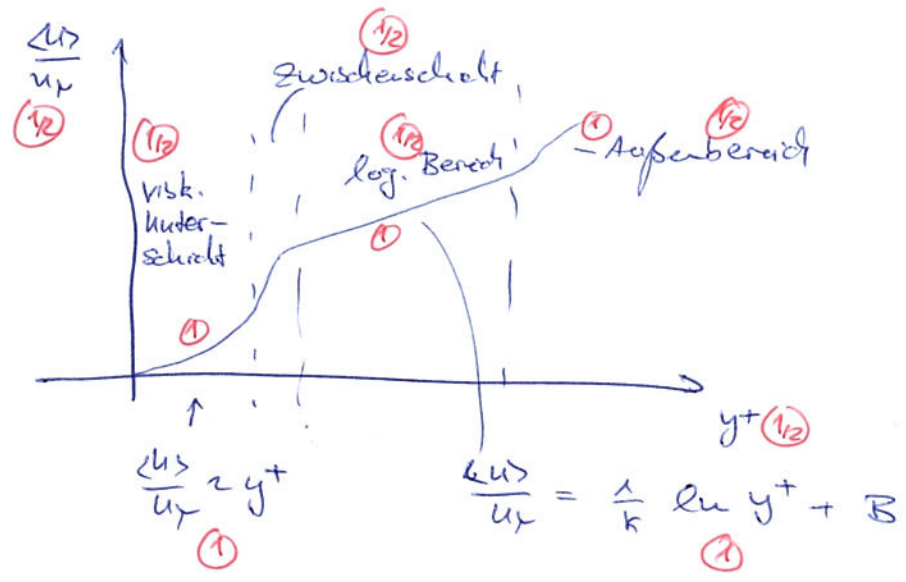 1/2
<u>
u_τ
1/2
Zwischenschicht
1/2
visk.
Unter-
schicht
1/2
log. Bereich
1
1/2
– Außenbereich
1
1
y+ 1/2
<u>/u_τ ~ y+
1
<u>/u_τ = 1/k ln y+ + B
1